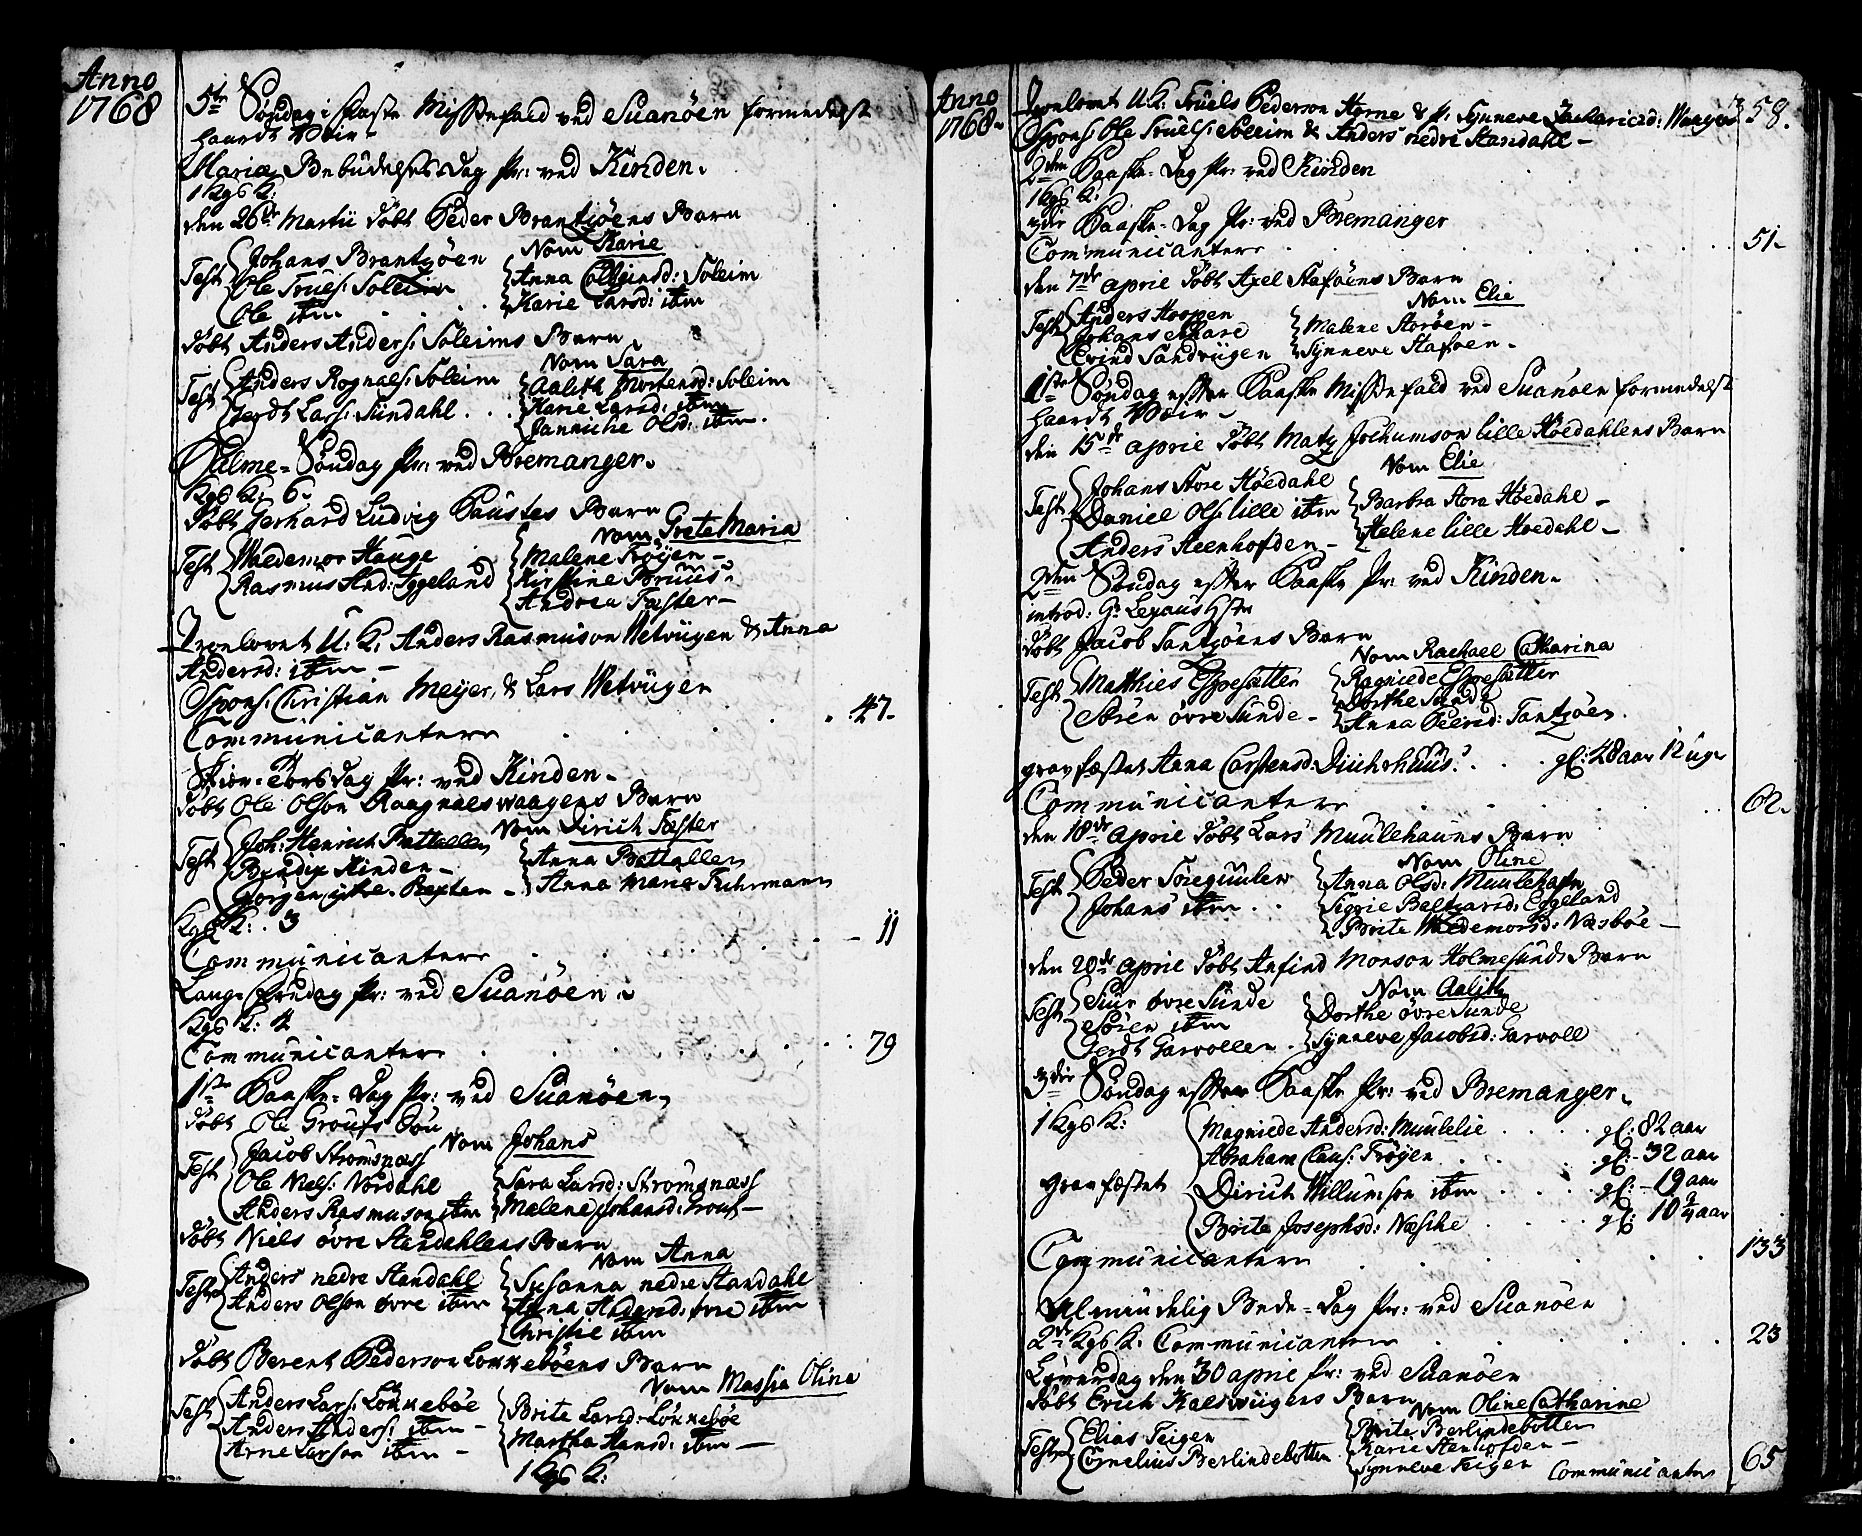 Anno
1768
5te Søndag i Faste Missefald ved Suanöen formedelst
haardt Veir
Mariæ Bebudelses Dag Pr: ved Kinden.
1 Kgs K:
den 26de Martii döbt Peder Brantzöens Barn
Nom Karie
Test Johans Brantzöen
Ole Truels: Soleim
Ole ibm
Anna Colbeinsd: Soleim
Karie Larsd: ibm
döbt Anders Anders: Soleims Barn
Nom Sara
Test Anders Rognals: Soleim
Gerdt Lars: Sundahl
Aalith Mortensd: Soleim
Karie Larsd: ibm
Janniche Olsd: ibm.
Palme-Söndag Pr: ved Bremanger.
Kgs K: 6.
döbt Gerhard Ludvig Faustes Barn
Nom Grete Maria
Test Waldemor Hauge
Rasmus And: Iggeland
Malene Frøyen
Kirstine Bruus
Andrea Faster
Trolovet U: K: Anders Rasmuson Wetvügen & Anna
Andersd: ibm
Spons: Christian Meyer, & Lars Wetvügen
Communicantere 47.
Skier-Torsdag Pr: ved Kinden.
döbt Ole Olson Raagnaeswaagens Barn
Nom Dirich Faster
Test Joh: Henrich Battallen
Bendix Kinden
Jörgen Rexten
Anna Battallen
Anna Maria Fuhrmann
Kgs K: 3
Communicantere 11
Lang Fredag Pr: ved Suanöen.
Kgs K: 4
Communicantere 79
1ste Paaske-Dag Pr: ved Suanöen.
döbt Ole Groufs Sön
Nom Johans
Test Jacob Strömsnæss
Ole Niels: Nordahl
Anders Rasmuson ibm
Sara Larsd: Strömsnæss
Malene Johansd: Grouf
döbt Niels övre Standahlens Barn
Nom Anna
Test Anders nedre Standahl
Anders Olson övre ibm
Susanna nedre Standahl
Anna Andersd: övre ibm
Christie ibm
döbt Berent Pederson Lonneböens Barn
Nom Massia Olina
Test Anders Lars: Lönneböe
Anders Anders: ibm
Arne Larson ibm
Brite Larsd: Lönneböe
Martha Hansd: ibm
1 Kgs K:
Anno
1768.
58.
Trolovet U: K: Truels Pederson Horne & P. Synneve Zachariesd: Waagen
Spons Ole Truels: Soleim & Anders nedre Standahl
2den Paaske-Dag Pr: ved Kinden
1 Kgs K:
3die Paaske-Dag Pr: ved Bremanger
Communicantere 51.
den 7de aprie döbt Axel Stafoens Barn
Nom Elie
Test Anders Hoopen
Johans
Eivind Sandvügen
Malene Storöen
Synneve Stafoen
1ste Søndag efter Paaske Missefald ved Suanöen formedelst
haardt Veir
den 15de aprie döbt Matz Jochumson lille Höedahlens Barn
Nom Elie
Test Johans Store Höedahl
Daniel Ols: lille ibm
Anders Steenhofden
Barbra Store Höedahl
Helene lille Hoedahl
2den Söndag efter Paaske Pr: ved Kinden.
introd: Gr: Lexaus Hstr
döbt Jacob Tantzöens Barn
Nom Rachael Catharina
Test Matthies Espesætter
Sören övre Sunde
Ragnilde Espesætter
Dorthe Sunde
Anna Peersd: Tantzöen
gravfæstet Anna Carstensd: Diichshuus gl: 28 aar 12 uger
Communicantere 62.
den 18de aprie döbt Lars Muulehauns Barn
Nom Oline
Test Peder Torequulen
Johans ibm
Anna Olsd: Muulehafn
Sigrie Baltzarsd: Eggeland
Brite Waldemorsd: Næsböe
den 20de aprie döbt Anfind Monson Holmesunds Barn
Nom Aalith
Test Siur övre Sunde
Sören ibm
Gerdt Garvollen
Dorthe övre Sunde
Synneve Jacobsd: Garvoll
3die Söndag efter Paaske Pr: ved Bremanger.
1 Kgs K:
gravfæstet Magnilde Andersd: Muulelie gl: 82 aar
Abraham Claus: Frøyen gl: 32 aar
Dirich Willumson ibm gl: 19 aar
Brite Josephsd: Næsche gl: 10 3/4 aar
Communicantere 133
Almindelig Bede-Dag Pr: ved Suanöen
2de Kgs K: Communicantere 23
Löverdag den 30 aprie Pr: ved Suanöen
döbt Erich Kalsvügens Barn
Nom Oline Catharine
Test Elias Teigen
Cornelius Berlindebotten
Brite Berlindebotten
Karie Stenhofden
Synneve Teigen
Communicanter 65